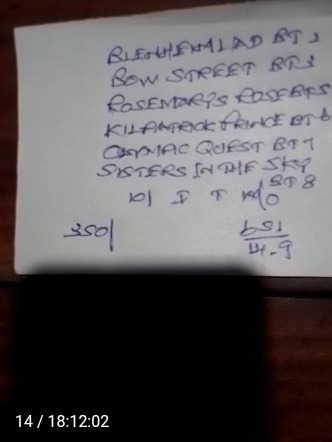 BLENHEIM LAD BT 2
BOW STREET BT 3
ROSEMARYS ROSE BT 5
KILPATRICK PRINCE BT 6
QUEST BT 7
SISTERS IN THE SKY
BT 8
10/
350/
14 / 18:12:02